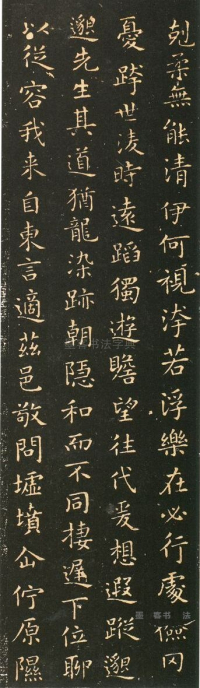 剋柔無能清伊何視洿若浮樂在必行處儉罔
憂跨世淩時遠蹈獨遊瞻望往代爰想遐蹤邈
邈先生其道猶龍染跡朝隱和而不同棲遲下位聊
以從容我来自東言適茲邑敬問墟墳企佇原隰
书法字典
书法